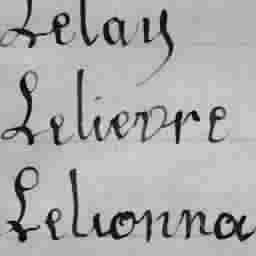 Lelay
Lelievre
Lelionna